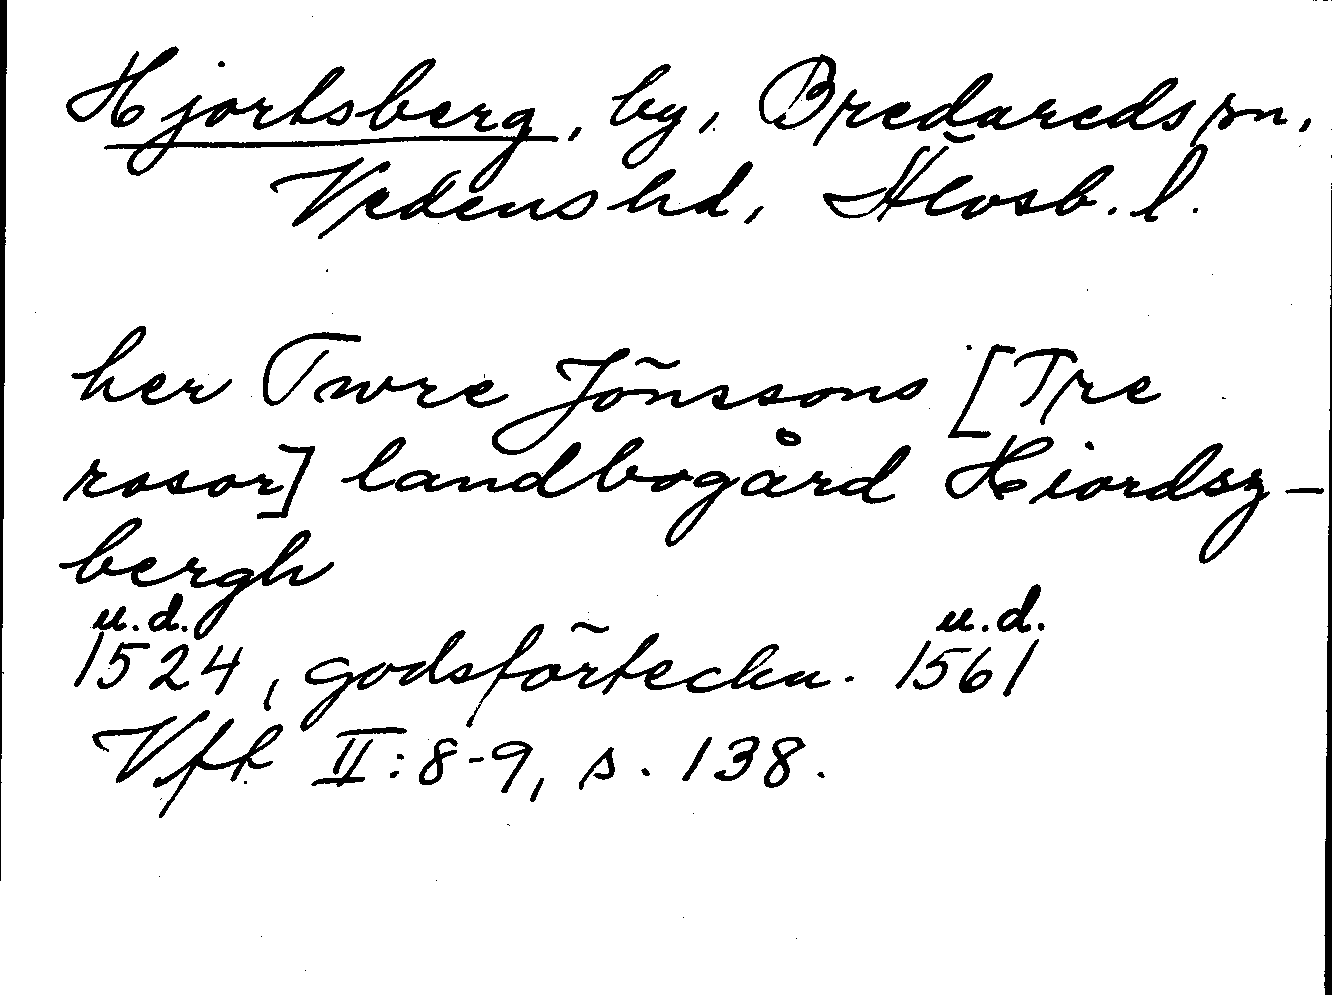 Hjortsberg, by, Bredareds sn,
Vedens hd, Älvsb. l.
her Twre Jönssons [Tre
rosor] landbogård Hiordsz-
bergh
u.d. u.d.
1524, godsförteckn. 1561
Vft II:8-9, s. 138.